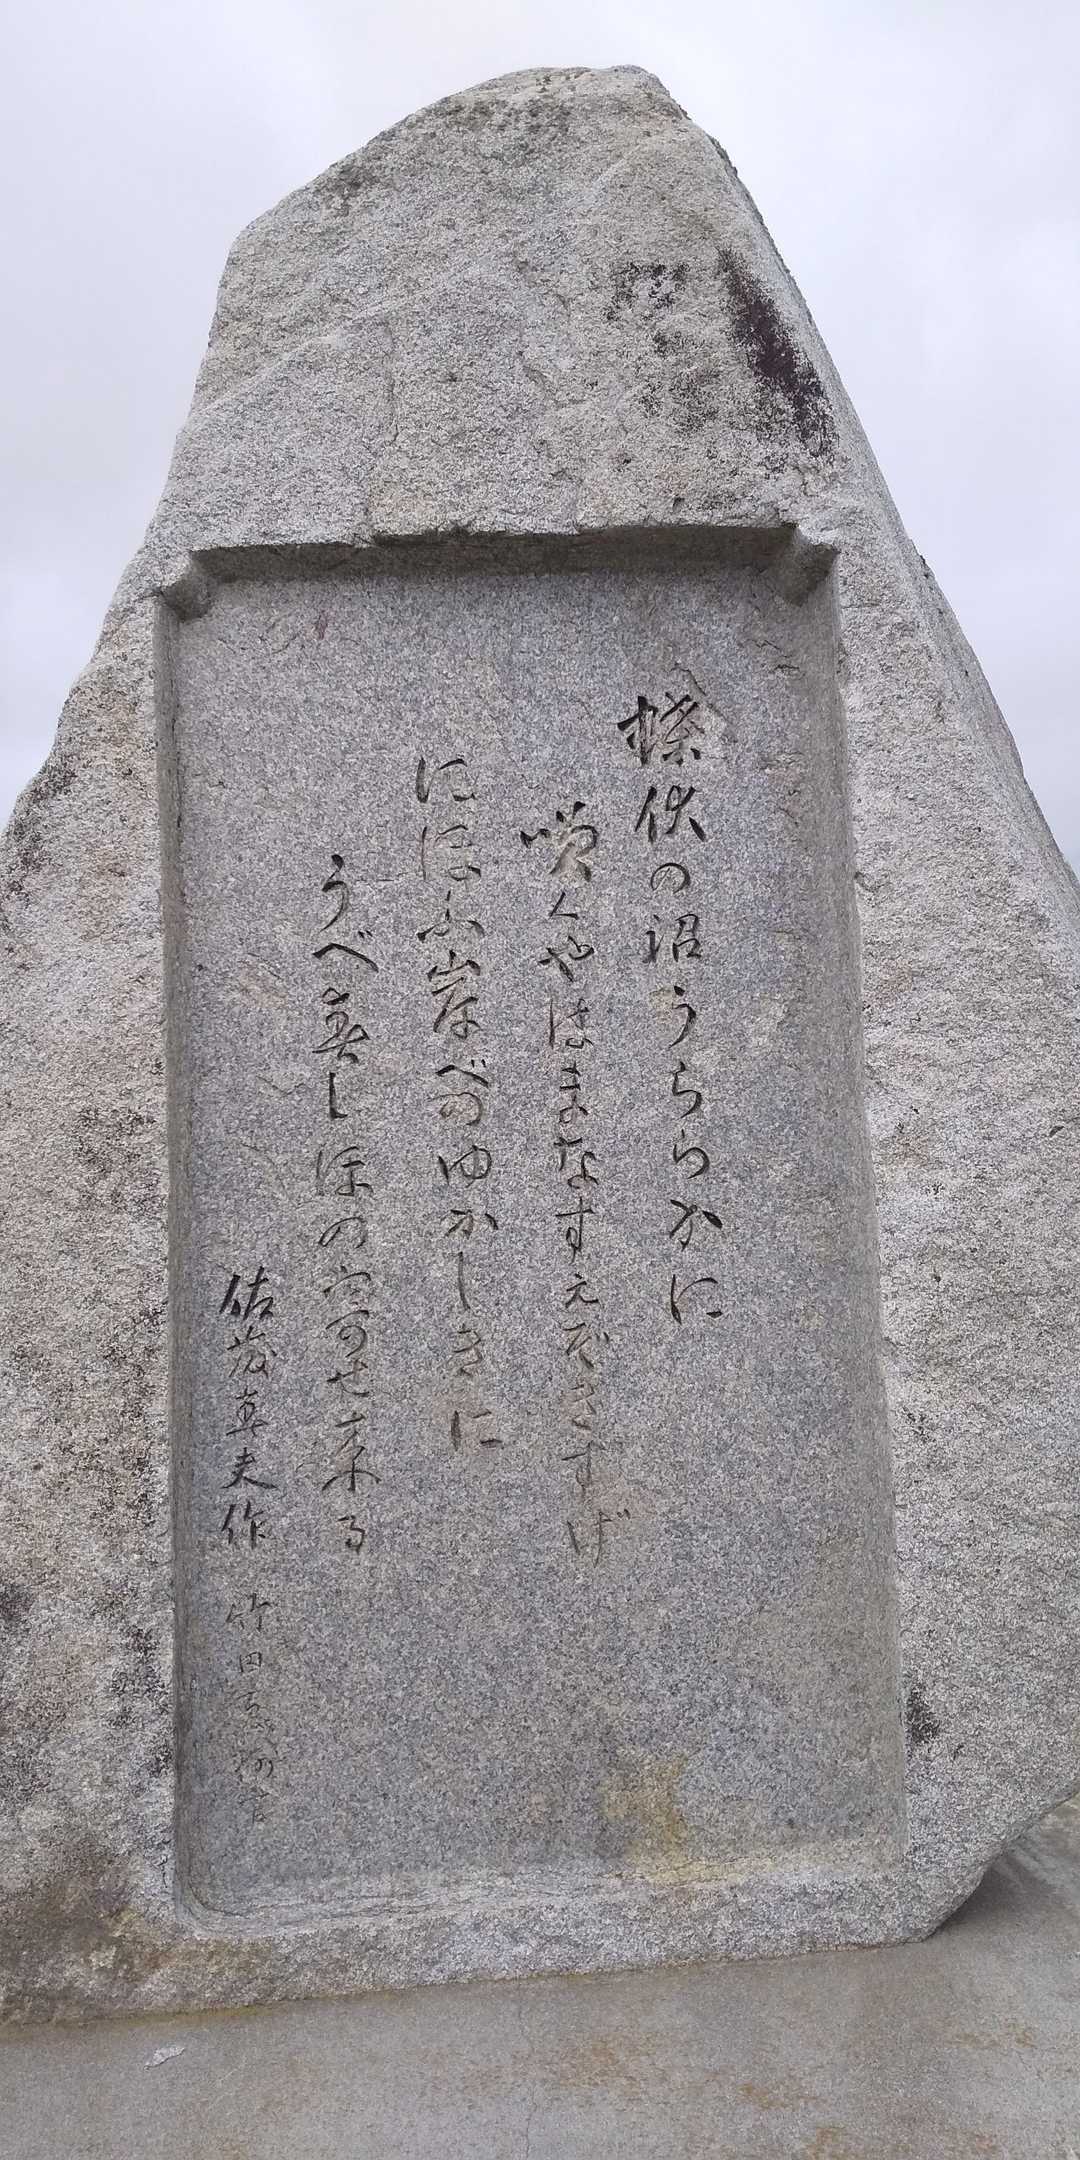 様似の沼うららかに
咲くやはまなすえぞきすげ
にほふ岸べのゆかしきに
うべ春しほの寄せ来る
佐茂菫夫作
竹田